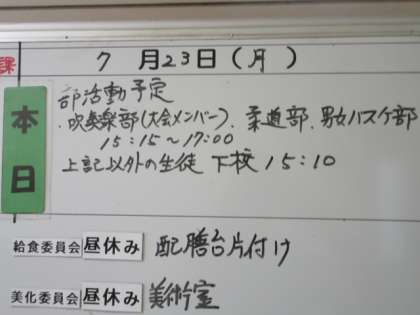 課
7月23日(月)
本日
部活動予定
・吹奏楽部(大会メンバー)、柔道部、男女バスケ部
15:15~17:00
上記以外の生徒 下校 15:10
給食委員会 昼休み 配膳台片付け
美化委員会 昼休み 美術室